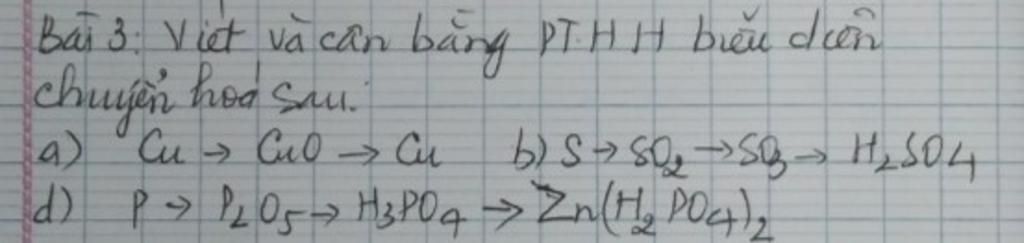 Bài 3: Viết và cân bằng PTHH biểu diễn
chuyển hoá sau.
a) Cu → CuO → Cu b) S → SO2 → SO3 → H2SO4
d) P → P2O5 → H3PO4 → Zn(H2PO4)2